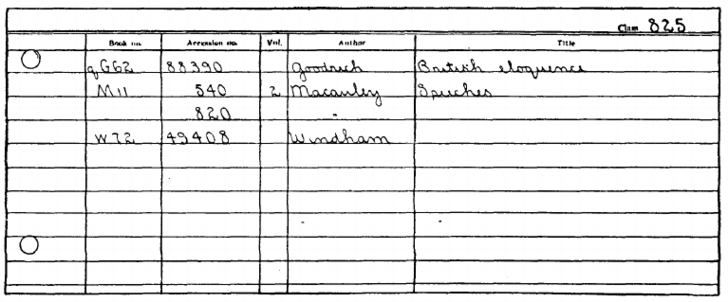 Class 825
Book no. Accession no. Vol. Author Title
qG62 88390 Goodrich British eloquence
M11 540 2 Macauley Speeches
820 "
W72 49408 Windham